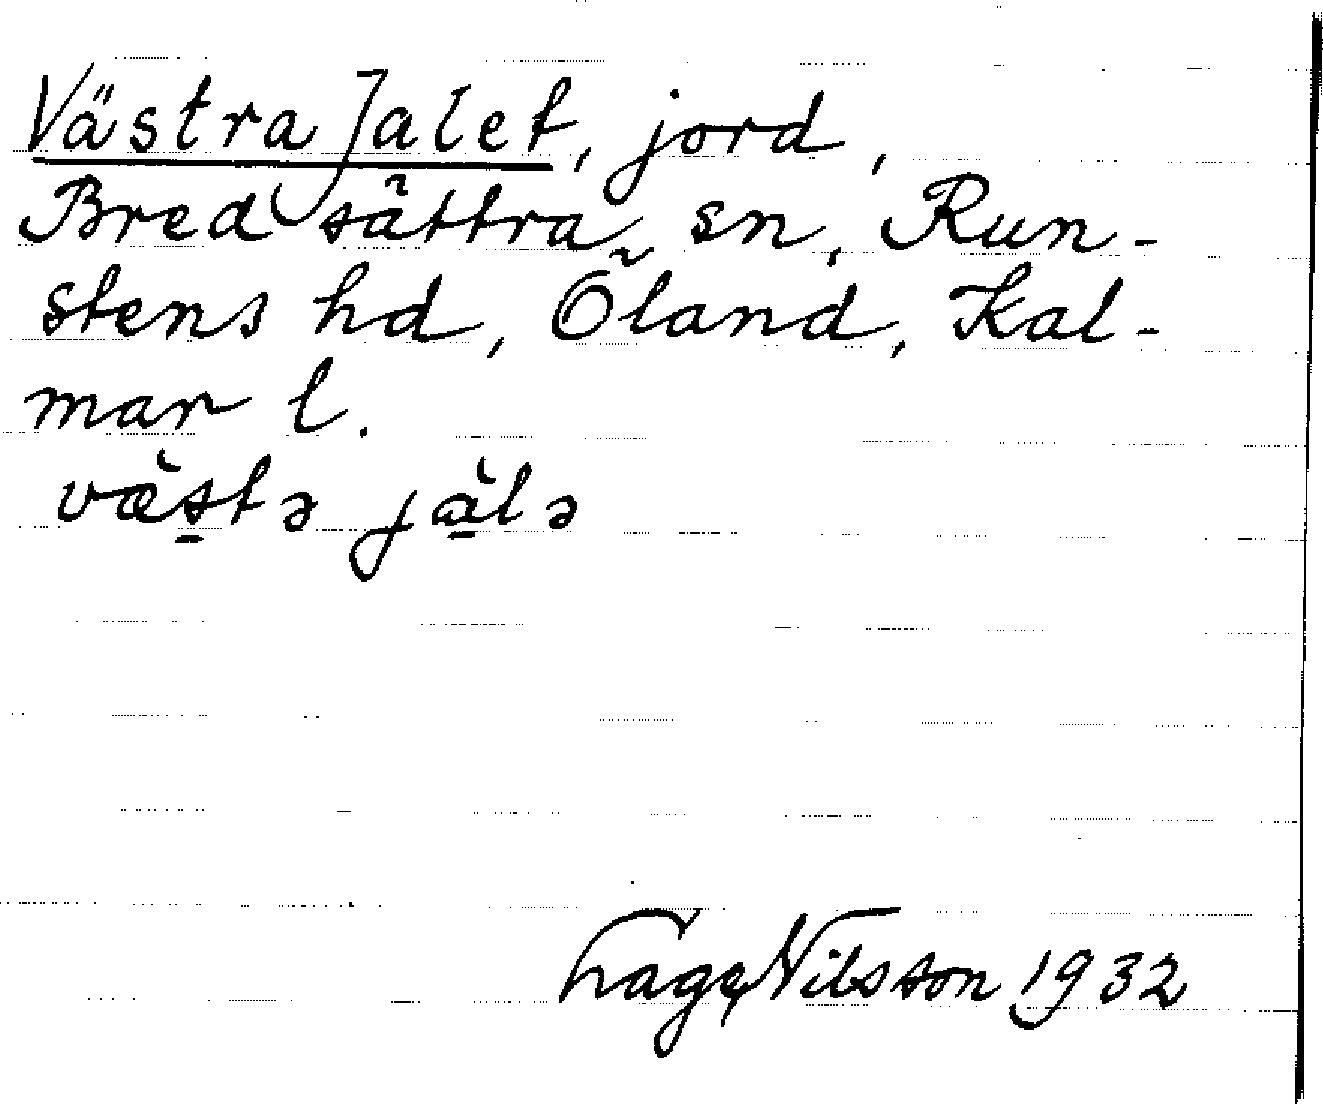 Västra Jalet, jord,
Bredsättra sn, Run-
stens hd, Öland, Kal-
mar l.
væ̀s̱tə jàḻə
Tage Nilsson 1932